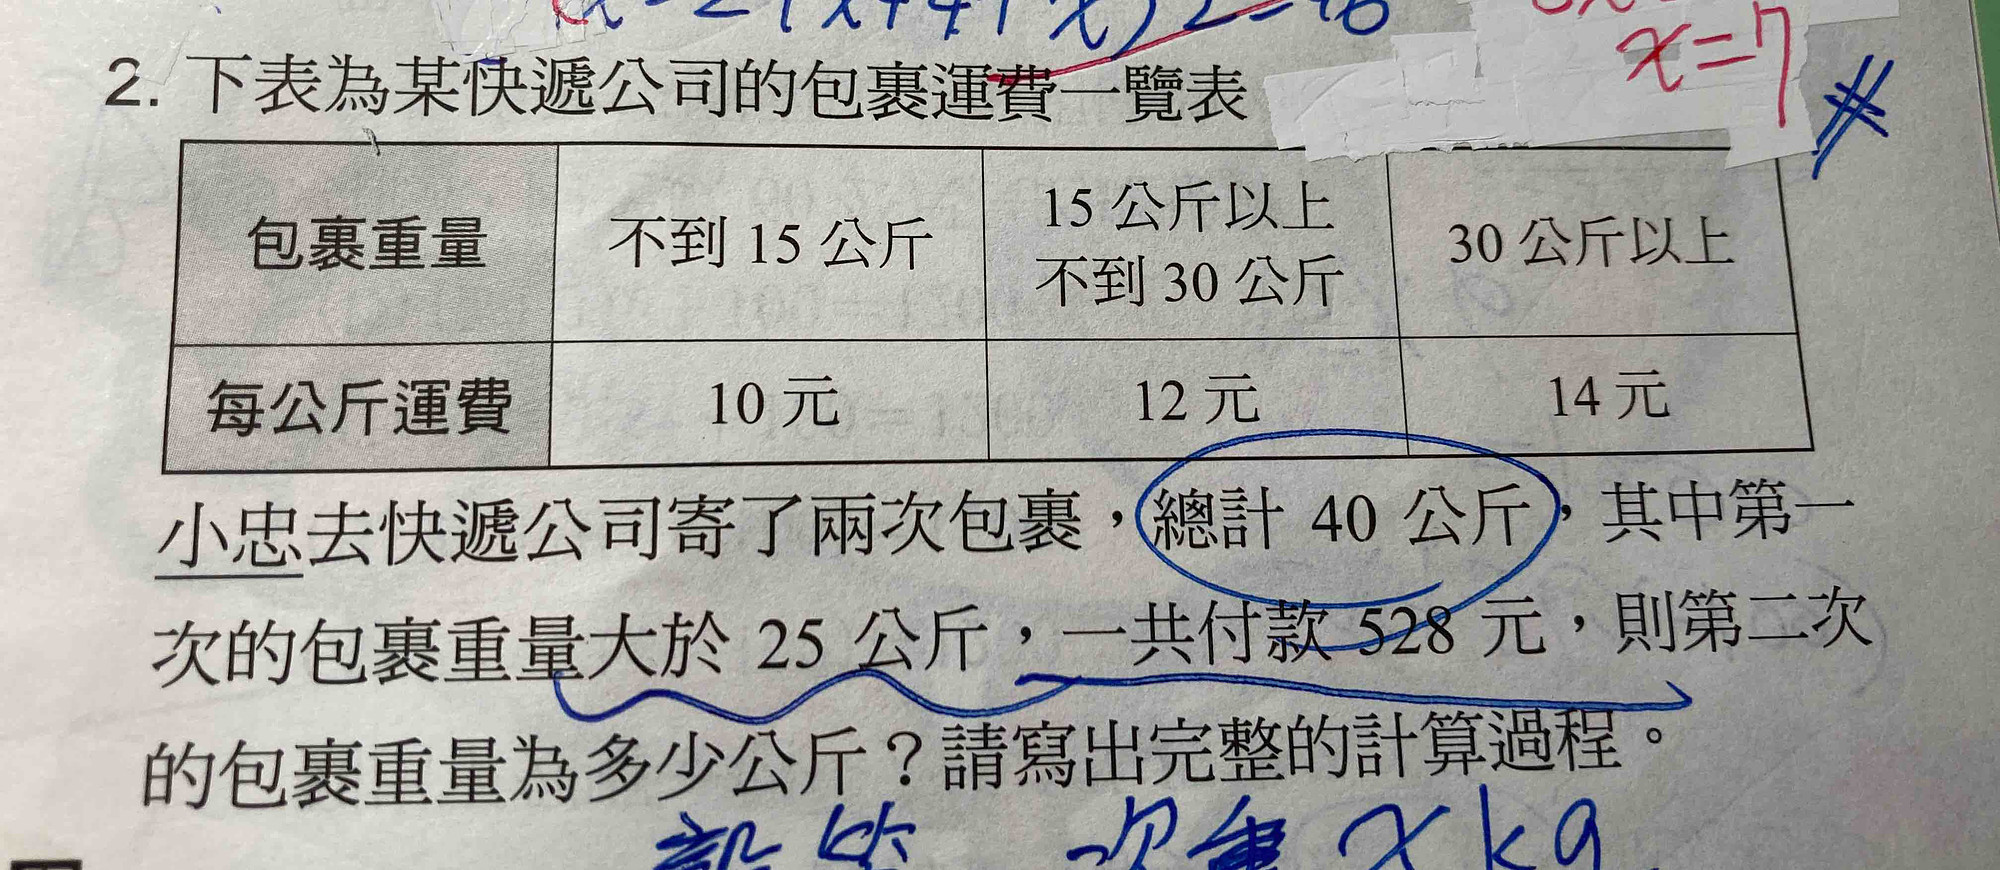 x=7
2. 下表為某快遞公司的包裹運費一覽表
包裹重量 不到 15 公斤 15 公斤以上 不到 30 公斤 30 公斤以上
每公斤運費 10 元 12 元 14 元
小忠去快遞公司寄了兩次包裹，總計 40 公斤，其中第一
次的包裹重量大於 25 公斤，一共付款 528 元，則第二次
的包裹重量為多少公斤？請寫出完整的計算過程。
次重 x kg